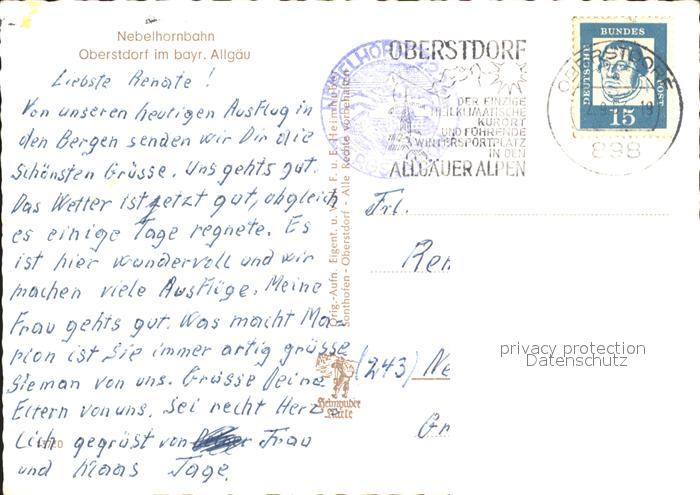 Nebelhornbahn
Oberstdorf im bayr. Allgäu
Liebste Renate!
Von unseren heutigen Ausflug in
den Bergen senden wir Dir die
schönsten Grüsse. Uns gehts gut.
Das Wetter ist jetzt gut, obgleich
es einige Tage regnete. Es
ist hier wundervoll und wir
machen viele Ausflüge. Meine
Frau gehts gut. Was macht Ma-
rion ist sie immer artig grüsse
Sieman von uns. Grüsse Deine
Eltern von uns. Sei recht Herz
lich gegrüst von Frau
und Klaas Tage.
Orig.-Aufn. Eigent. u. Verl. F. u. E. Heimhuber
Sonthofen - Oberstdorf - Alle Rechte vorbehalten
Heimhuber
Karte
OBERSTDORF
DER EINZIGE
HEILKLIMATISCHE
KURORT
UND FÜHRENDE
WINTERSPORTPLATZ
IN DEN
ALLGÄUER ALPEN
OBERSTDORF
898
DEUTSCHE BUNDESPOST
15
Frl.
Ren
(243) Ne
Gr
privacy protection
Datenschutz